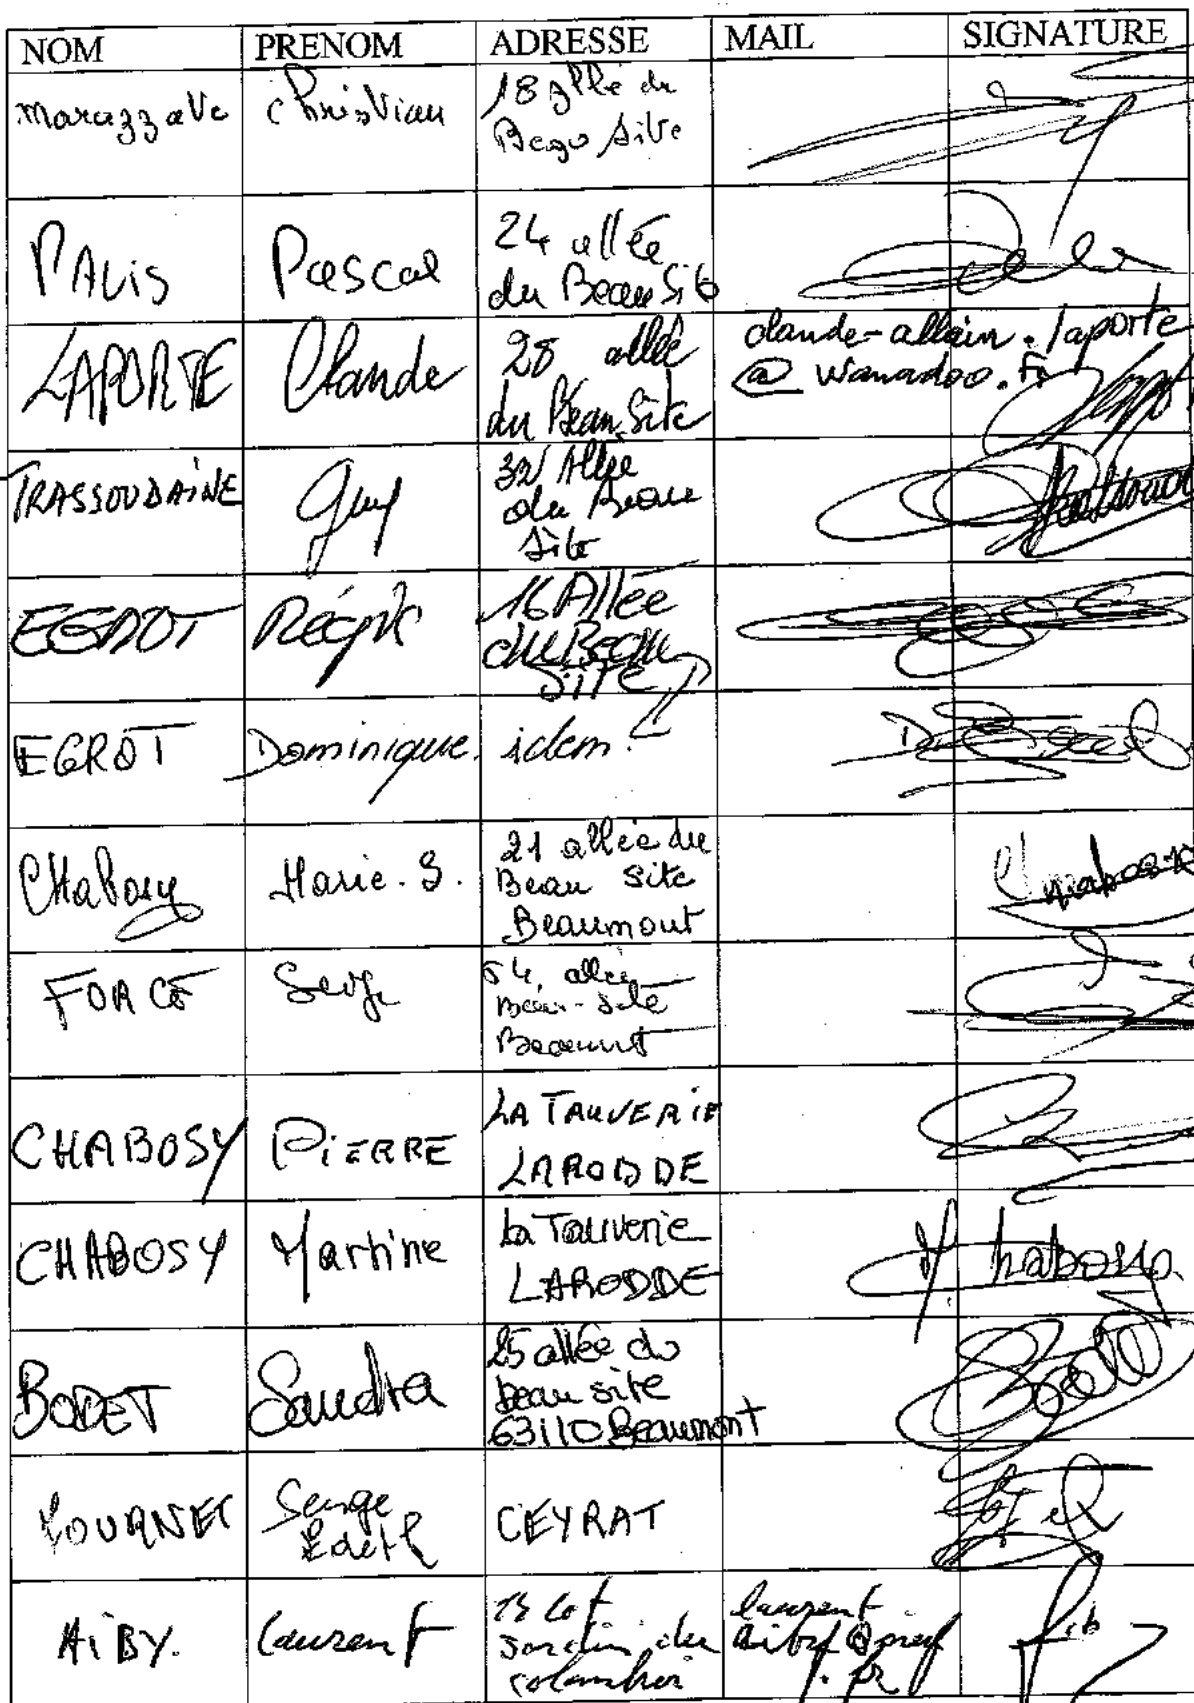 NOM PRENOM ADRESSE MAIL SIGNATURE
Christian 18 allée du
Beau Site
PALIS Pascal 24 allée
du Beau Site
LAPORTE Claude 28 allée
du Beau Site
claude-allain.laporte
@wanadoo.fr
TRASSOUDAINE Guy 32 Allée
du Beau
Site
EGROT Régis 16 Allée
du Beau
SITE
EGROT Dominique. idem
Chabosy Marie. J. 21 allée du
Beau site
Beaumont
FORCE Serge 54, allée
Beau-Site
Beaumont
CHABOSY PIERRE LA TAUVERIE
LARODDE
CHABOSY Martine La Tauverie
LARODDE
M. Chabosy
BODET Sandra 25 allée du
beau site
63110 Beaumont
Serge
Edith
CEYRAT
AIBY. Laurent lot
jardin du
colombier
laurent